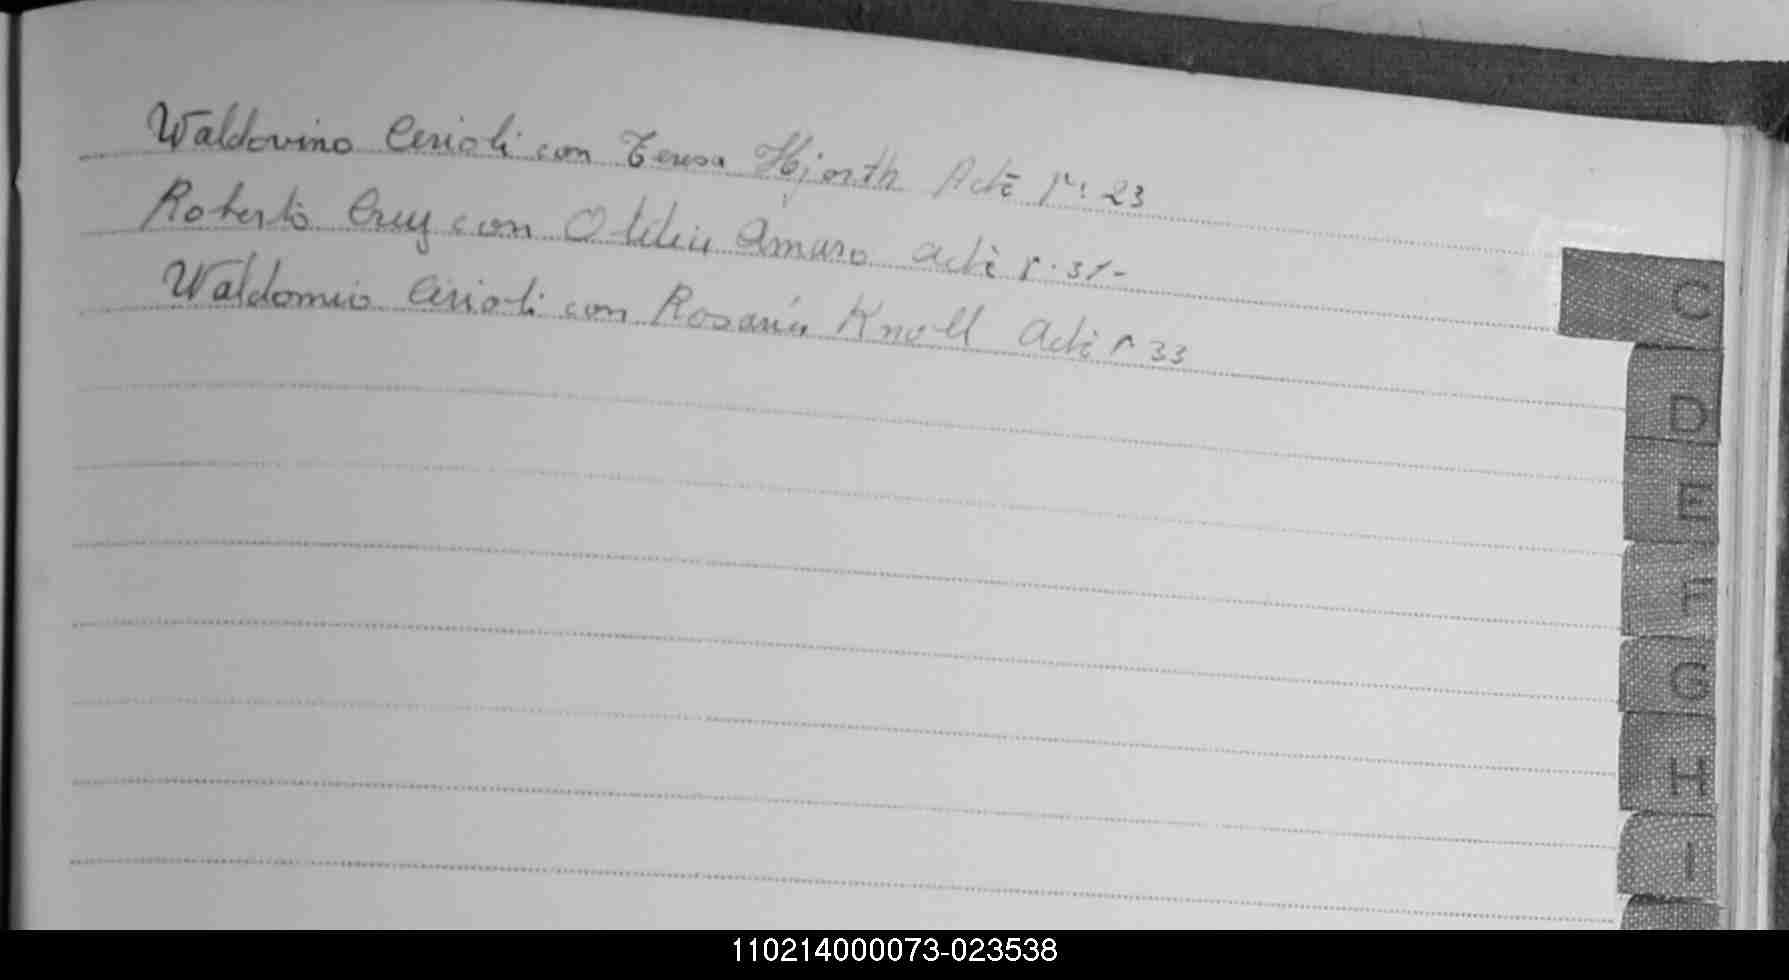 Waldovino Cerioli con Teresa Hjorth Acta nº: 23
Roberto Cruz con Otilia Amaro acta nº 31-
Waldomiro Cerioli con Rosaria Knoll Acta nº 33
C
D
E
F
G
H
I
110214000073-023538